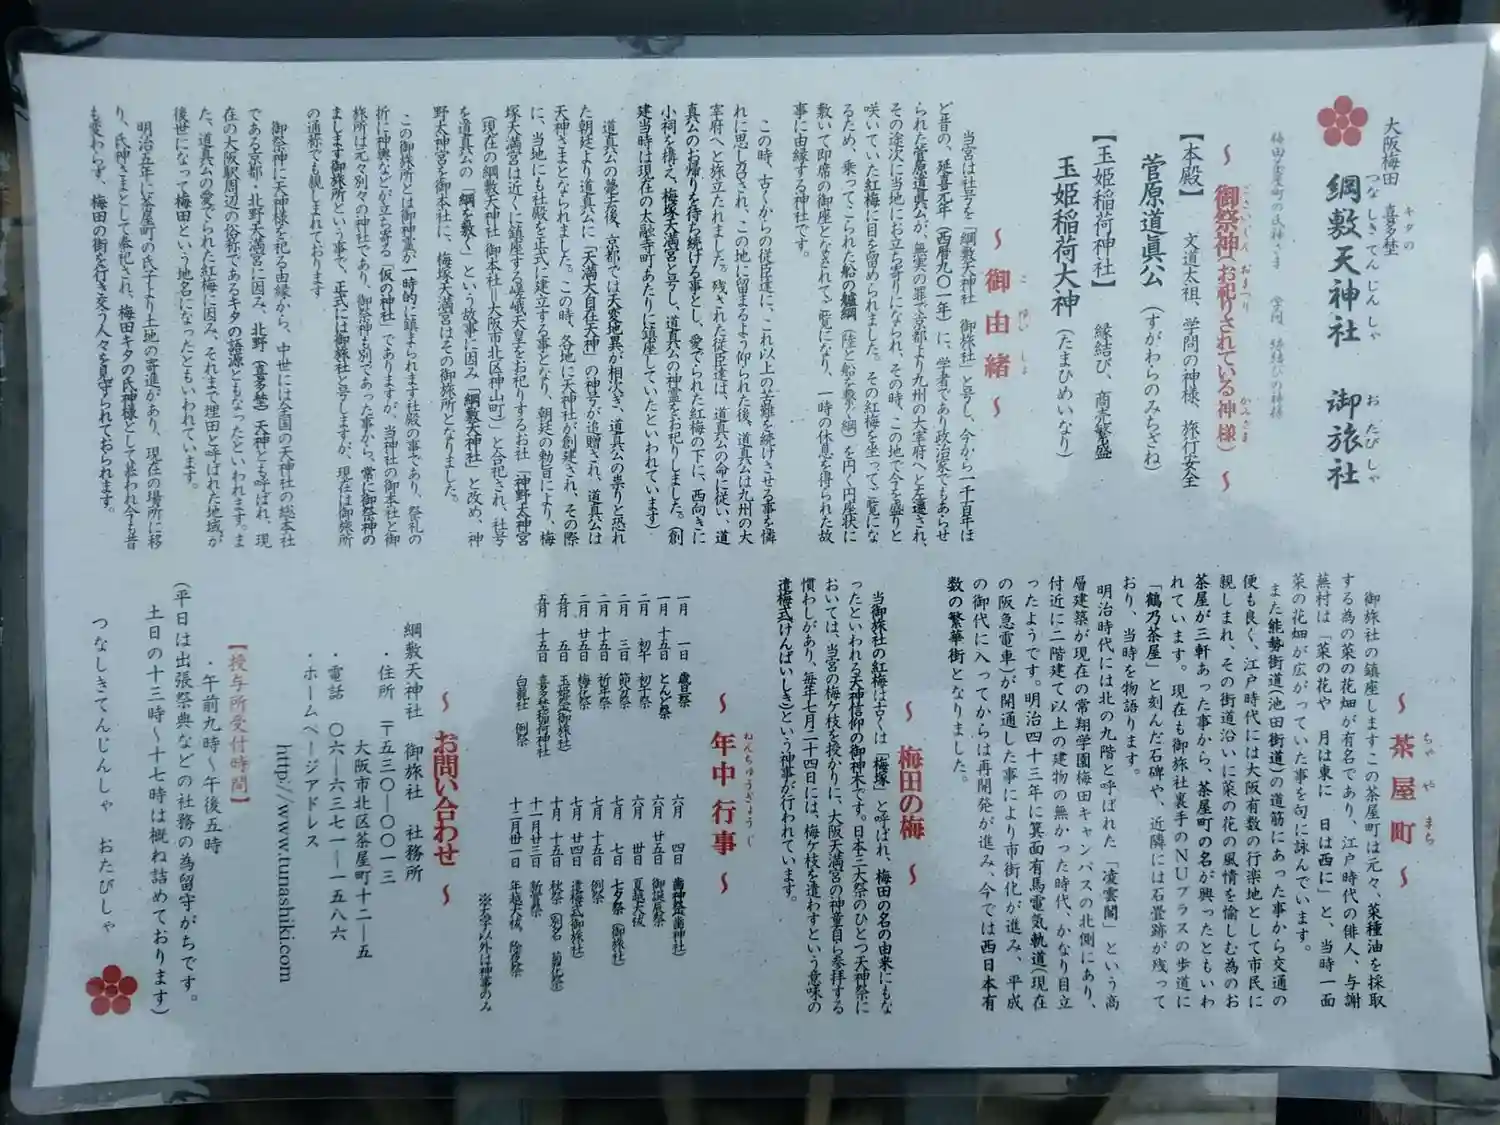 大阪梅田 喜多埜
キタの
綱敷天神社 御旅社
つなしきてんじんしゃ おたびしゃ
梅田茶屋町の氏神さま 学問、縁結びの神様
~ 御祭神(お祀りされている神様) ~
ごさいじん おまつり かみさま
【本殿】 文道太祖、学問の神様、旅行安全
菅原道眞公 (すがわらのみちざね)
【玉姫稲荷神社】 縁結び、商売繁盛
玉姫稲荷大神 (たまひめいなり)
~ 御由緒 ~
ご ゆい しょ
当宮は社号を「綱敷天神社 御旅社」と号し、今から一千百年ほ
ど昔の、延喜元年(西暦九〇一年)に、学者であり政治家でもあらせ
られた菅原道真公が、無実の罪で京都より九州の大宰府へと左遷され、
その途次に当地にお立ち寄りになられ、その時、この地で今を盛りと
咲いていた紅梅に目を留められました。その紅梅を坐ってご覧にな
るため、乗ってこられた船の艫綱(陸と船を繋ぐ綱)を円く円座状に
敷いて即席の御座となされてご覧になり、一時の休息を得られた故
事に由縁する神社です。
この時、古くからの従臣達に、これ以上の苦難を続けさせる事を憐
れに思し召され、この地に留まるよう仰られた後、道真公は九州の大
宰府へと旅立たれました。残された従臣達は、道真公の命に従い、道
真公のお帰りを待ち続ける事とし、愛でられた紅梅の下に、西向きに
小祠を構え、梅塚天満宮と号し、道真公の神霊をお祀りしました。(創
建当時は現在の太融寺町あたりに鎮座していたといわれています)
道真公の薨去後、京都では天変地異が相次ぎ、道真公の祟りと恐れ
た朝廷より道真公に「天満大自在天神」の神号が追贈され、道真公は
天神さまとなられました。この時、各地に天神社が創建され、その際
に、当地にも社殿を正式に建立する事となり、朝廷の勅旨により、梅
塚天満宮は近くに鎮座する嵯峨天皇をお祀りするお社「神野太神宮
(現在の綱敷天神社 御本社=大阪市北区神山町)」と合祀され、社号
を道真公の「綱を敷く」という故事に因み「綱敷天神社」と改め、神
野太神宮を御本社に、梅塚天満宮はその御旅所となりました。
この御旅所とは御神霊が一時的に鎮まられます社殿の事であり、祭礼の
折に神輿などが立ち寄る「仮の神社」でありますが、当神社の御本社と御
旅所は元々別々の神社であり、御祭神も別であった事から、常に御祭神の
まします御旅所という事で、正式には御旅社と号しますが、現在は御旅所
の通称でも親しまれております
御祭神に天神様を祀る由縁から、中世には全国の天神社の総本社
である京都・北野天満宮に因み、北野(喜多埜)天神とも呼ばれ、現
在の大阪駅周辺の俗称であるキタの語源ともなったといわれます。ま
た、道真公の愛でられた紅梅に因み、それまで埋田と呼ばれた地域が
後世になって梅田という地名になったともいわれています。
明治五年に茶屋町の氏子より土地の寄進があり、現在の場所に移
り、氏神さまとして奉祀され、梅田キタの氏神様として慕われ今も昔
も変わらず、梅田の街を行き交う人々を見守られておられます。
~ 茶屋町 ~
ちゃ や まち
御旅社の鎮座しますこの茶屋町は元々、菜種油を採取
する為の菜の花畑が有名であり、江戸時代の俳人、与謝
蕪村は「菜の花や 月は東に 日は西に」と、当時一面
菜の花畑が広がっていた事を句に詠んでいます。
また能勢街道(池田街道)の道筋にあった事から交通の
便も良く、江戸時代には大阪有数の行楽地として市民に
親しまれ、その街道沿いに菜の花の風情を愉しむ為のお
茶屋が三軒あった事から、茶屋町の名が興ったともいわ
れています。現在も御旅社裏手のNU茶屋町プラスの歩道に
「鶴乃茶屋」と刻んだ石碑や、近隣には石畳跡が残って
おり、当時を物語ります。
明治時代には北の九階と呼ばれた「凌雲閣」という高
層建築が現在の常翔学園梅田キャンパスの北側にあり、
付近に二階建て以上の建物の無かった時代、かなり目立
ったようです。明治四十三年に箕面有馬電気軌道(現在
の阪急電車)が開通した事により市街化が進み、平成
の御代に入ってからは再開発が進み、今では西日本有
数の繁華街となりました。
~ 梅田の梅 ~
当御旅社の紅梅は古くは「梅塚」と呼ばれ、梅田の名の由来にもな
ったといわれる天神信仰の御神木です。日本三大祭のひとつ天神祭に
おいては、当宮の梅ケ枝を授かりに、大阪天満宮の神童自ら参拝する
慣わしがあり、毎年七月二十四日には、梅ケ枝を遣わすという意味の
遣梅式(けんばいしき)という神事が行われています。
~ 年中行事 ~
ねんちゅうぎょうじ
一月 一日 歳旦祭
一月 十五日 とんど祭
二月 初午 初午祭
二月 三日 節分祭
二月 十五日 祈年祭
二月 廿五日 梅花祭
五月 五日 玉姫祭(御旅社)
五月 十五日 喜多埜稲荷神社
白龍社 例祭
六月 四日 歯神祭(歯神社)
六月 廿五日 御誕辰祭
六月 卅日 夏越大祓
七月 七日 七夕祭(御旅社)
七月 十五日 例祭
七月 廿四日 遣梅式(御旅社)
十月 十五日 秋祭(別名 菊花祭)
十一月 廿三日 新嘗祭
十二月 卅一日 年越大祓、除夜祭
※太字以外は神事のみ
~ お問い合わせ ~
綱敷天神社 御旅社 社務所
・住所 〒五三〇-〇〇一三
大阪市北区茶屋町十二-五
・電話 〇六-六三七一-一五八六
・ホームページアドレス
http//www.tunashiki.com
【授与所受付時間】
・午前九時~午後五時
(平日は出張祭典などの社務の為留守がちです。
土日の十三時~十七時は概ね詰めております)
つなしきてんじんしゃ おたびしゃ